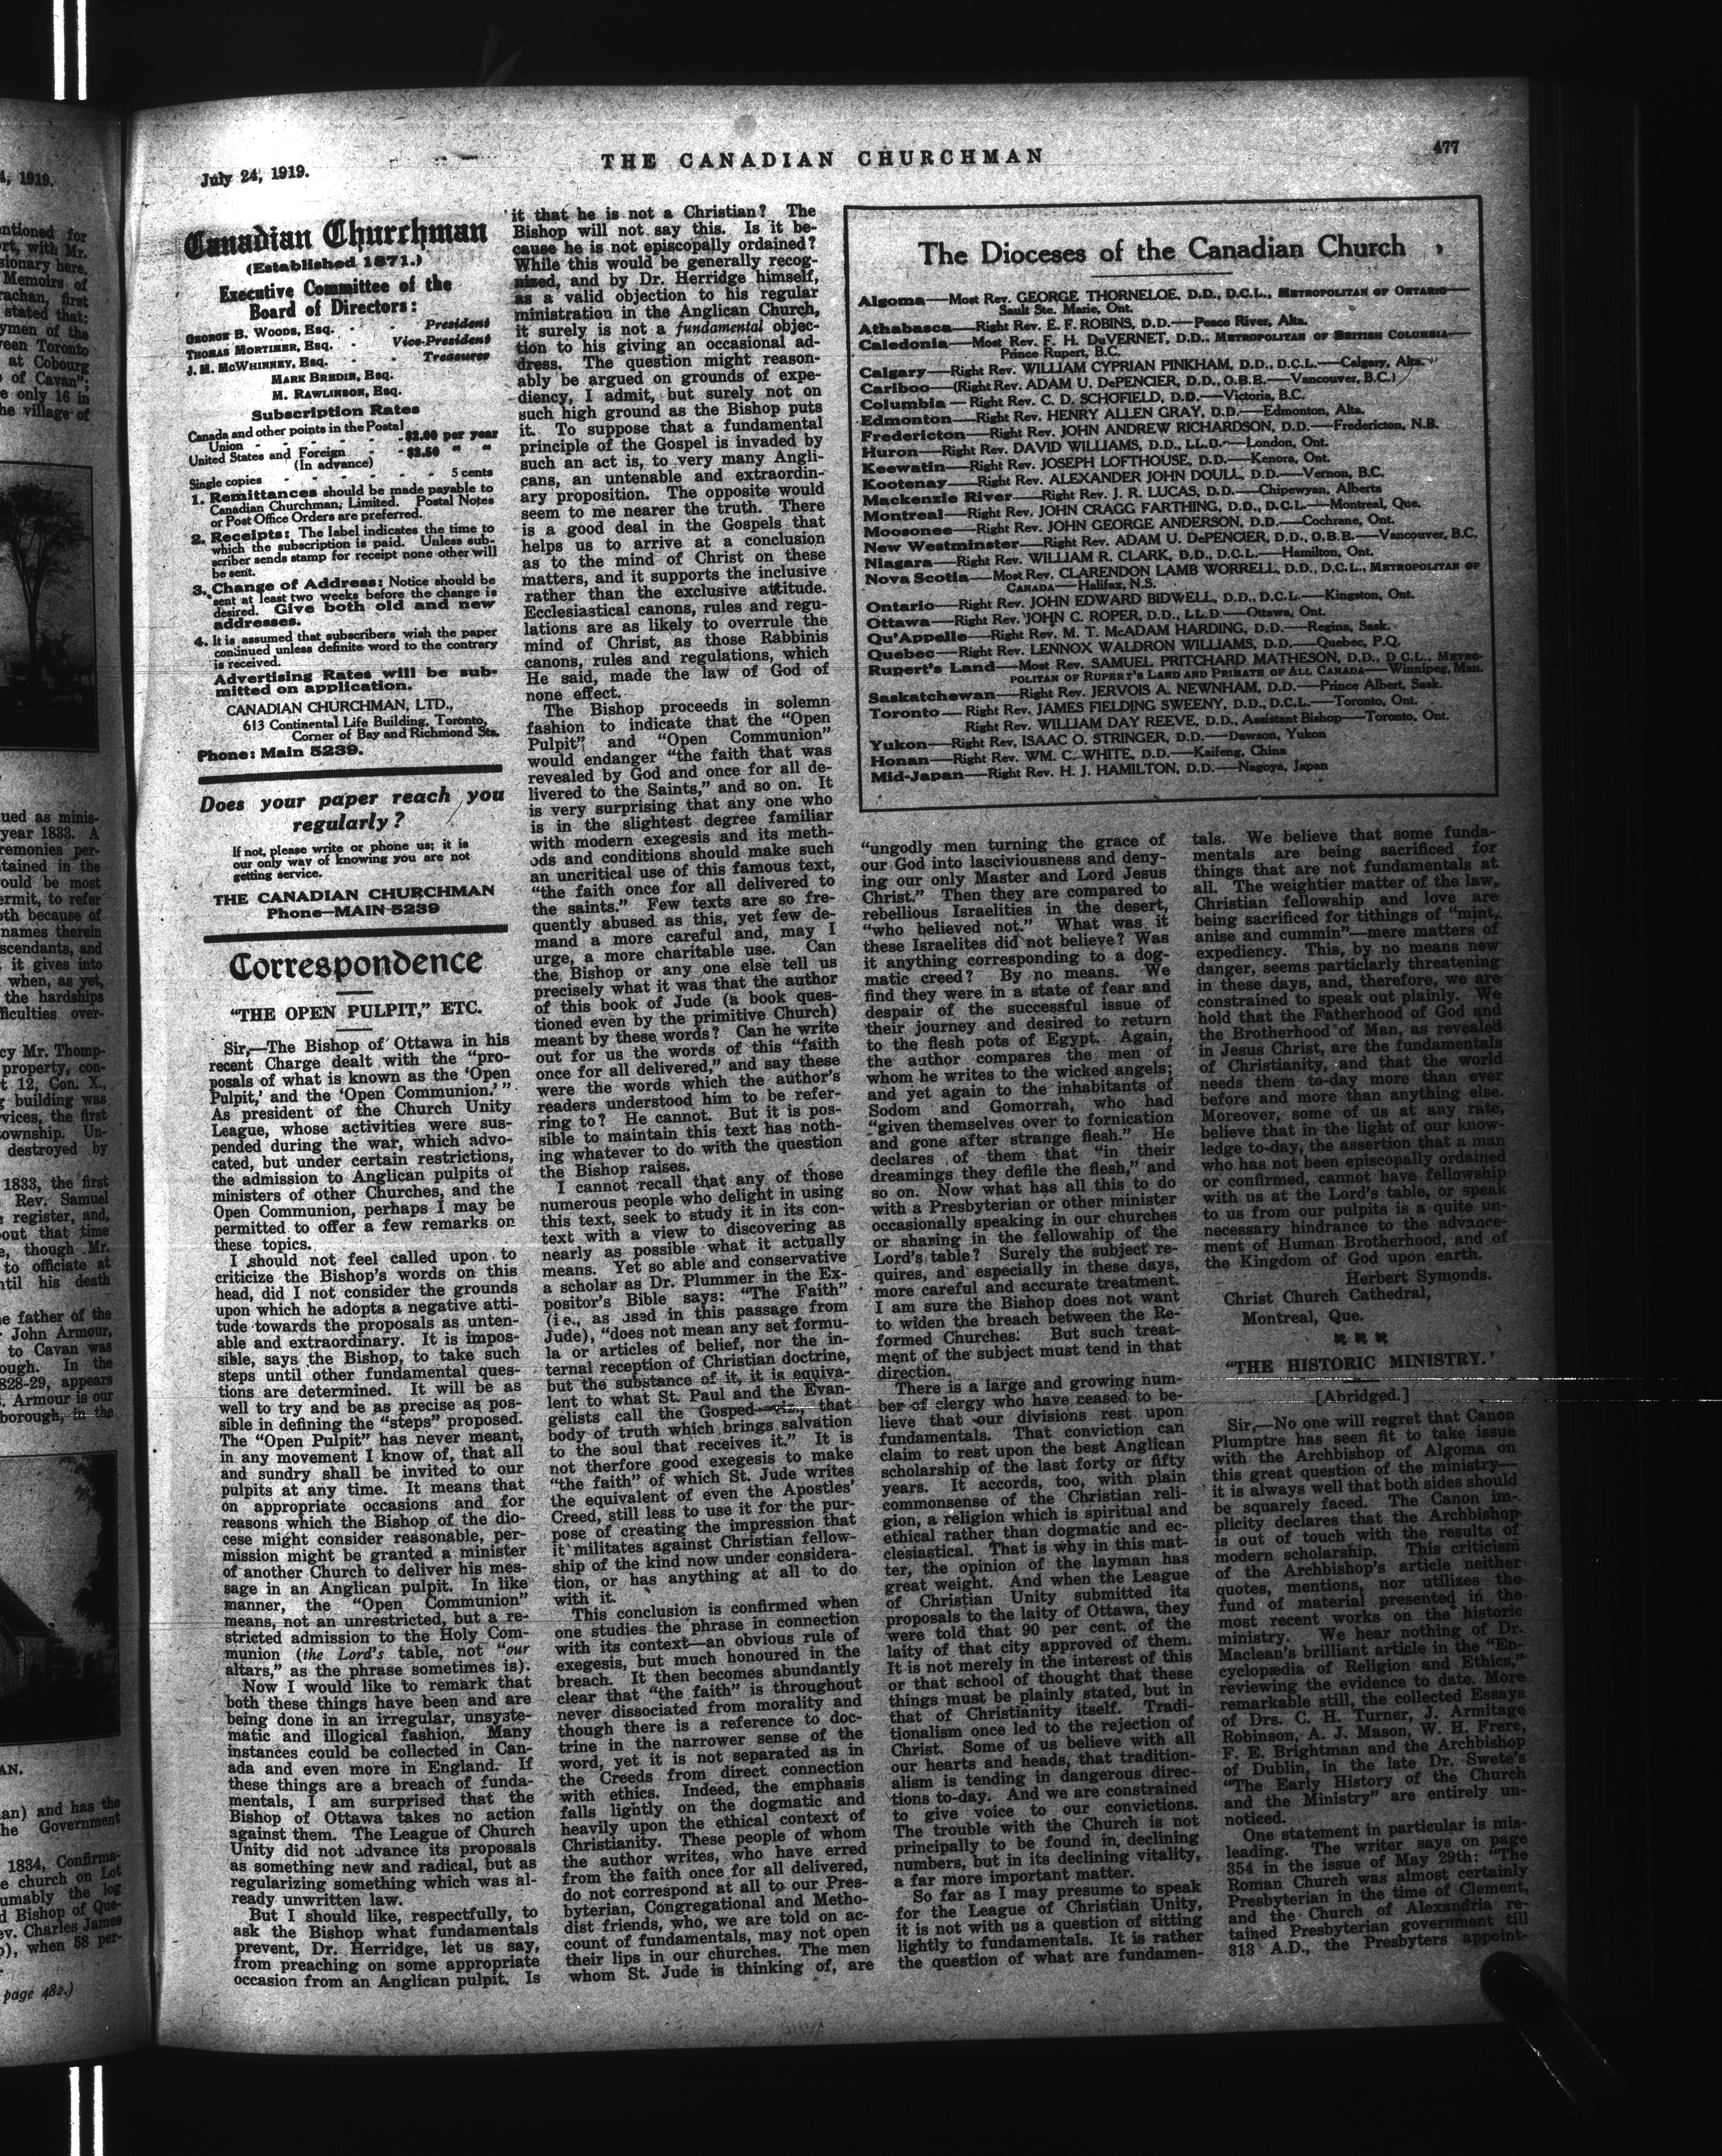 July 24, 1919.
THE CANADIAN CHURCHMAN
477
Canadian Churchman
(Established 1871.)
Executive Committee of the
Board of Directors:
GEORGE B. WOODS, ESQ. - - President
THOMAS MORTIMER, ESQ. - - Vice-President
J. M. MCWHINNEY, ESQ. - - Treasurer
MARK BREDIN, ESQ.
M. RAWLINSON, ESQ.
Subscription Rates
Canada and other points in the Postal
Union - - - - - - $2.00 per year
United States and Foreign - - $2.50 " "
(In advance)
Single copies - - - - - 5 cents
1. Remittances should be made payable to
Canadian Churchman, Limited. Postal Notes
or Post Office Orders are preferred.
2. Receipts: The label indicates the time to
which the subscription is paid. Unless sub-
scriber sends stamp for receipt none other will
be sent.
3. Change of Address: Notice should be
sent at least two weeks before the change is
desired. Give both old and new
addresses.
4. It is assumed that subscribers wish the paper
continued unless definite word to the contrary
is received.
Advertising Rates will be sub-
mitted on application.
CANADIAN CHURCHMAN, LTD.,
613 Continental Life Building, Toronto,
Corner of Bay and Richmond Sts.
Phone: Main 5239.
Does your paper reach you
regularly?
If not, please write or phone us; it is
our only way of knowing you are not
getting service.
THE CANADIAN CHURCHMAN
Phone—MAIN 5239
Correspondence
"THE OPEN PULPIT," ETC.
Sir,—The Bishop of Ottawa in his
recent Charge dealt with the "pro-
posals of what is known as the 'Open
Pulpit,' and the 'Open Communion.'"
As president of the Church Unity
League, whose activities were sus-
pended during the war, which advo-
cated, but under certain restrictions,
the admission to Anglican pulpits of
ministers of other Churches, and the
Open Communion, perhaps I may be
permitted to offer a few remarks on
these topics.
I should not feel called upon to
criticize the Bishop's words on this
head, did I not consider the grounds
upon which he adopts a negative atti-
tude towards the proposals as unten-
able and extraordinary. It is impos-
sible, says the Bishop, to take such
steps until other fundamental ques-
tions are determined. It will be as
well to try and be as precise as pos-
sible in defining the "steps" proposed.
The "Open Pulpit" has never meant,
in any movement I know of, that all
and sundry shall be invited to our
pulpits at any time. It means that
on appropriate occasions and for
reasons which the Bishop of the dio-
cese might consider reasonable, per-
mission might be granted a minister
of another Church to deliver his mes-
sage in an Anglican pulpit. In like
manner, the "Open Communion"
means, not an unrestricted, but a re-
stricted admission to the Holy Com-
munion (the Lord's table, not "our
altars," as the phrase sometimes is).
Now I would like to remark that
both these things have been and are
being done in an irregular, unsyste-
matic and illogical fashion. Many
instances could be collected in Can-
ada and even more in England. If
these things are a breach of funda-
mentals, I am surprised that the
Bishop of Ottawa takes no action
against them. The League of Church
Unity did not advance its proposals
as something new and radical, but as
regularizing something which was al-
ready unwritten law.
But I should like, respectfully, to
ask the Bishop what fundamentals
prevent, Dr. Herridge, let us say,
from preaching on some appropriate
occasion from an Anglican pulpit. Is
it that he is not a Christian? The
Bishop will not say this. Is it be-
cause he is not episcopally ordained?
While this would be generally recog-
nized, and by Dr. Herridge himself,
as a valid objection to his regular
ministration in the Anglican Church,
it surely is not a fundamental objec-
tion to his giving an occasional ad-
dress. The question might reason-
ably be argued on grounds of expe-
diency, I admit, but surely not on
such high ground as the Bishop puts
it. To suppose that a fundamental
principle of the Gospel is invaded by
such an act is, to very many Angli-
cans, an untenable and extraordin-
ary proposition. The opposite would
seem to me nearer the truth. There
is a good deal in the Gospels that
helps us to arrive at a conclusion
as to the mind of Christ on these
matters, and it supports the inclusive
rather than the exclusive attitude.
Ecclesiastical canons, rules and regu-
lations are as likely to overrule the
mind of Christ, as those Rabbinis
canons, rules and regulations, which
He said, made the law of God of
none effect.
The Bishop proceeds in solemn
fashion to indicate that the "Open
Pulpit" and "Open Communion"
would endanger "the faith that was
revealed by God and once for all de-
livered to the Saints," and so on. It
is very surprising that any one who
is in the slightest degree familiar
with modern exegesis and its meth-
ods and conditions should make such
an uncritical use of this famous text,
"the faith once for all delivered to
the saints." Few texts are so fre-
quently abused as this, yet few de-
mand a more careful and, may I
urge, a more charitable use. Can
the Bishop or any one else tell us
precisely what it was that the author
of this book of Jude (a book ques-
tioned even by the primitive Church)
meant by these words? Can he write
out for us the words of this "faith
once for all delivered," and say these
were the words which the author's
readers understood him to be refer-
ring to? He cannot. But it is pos-
sible to maintain this text has noth-
ing whatever to do with the question
the Bishop raises.
I cannot recall that any of those
numerous people who delight in using
this text, seek to study it in its con-
text with a view to discovering as
nearly as possible what it actually
means. Yet so able and conservative
a scholar as Dr. Plummer in the Ex-
positor's Bible says: "The Faith"
(i.e., as used in this passage from
Jude), "does not mean any set formu-
la or articles of belief, nor the in-
ternal reception of Christian doctrine,
but the substance of it, it is equiva-
lent to what St. Paul and the Evan-
gelists call the Gosped—viz., that
body of truth which brings salvation
to the soul that receives it." It is
not therfore good exegesis to make
"the faith" of which St. Jude writes
the equivalent of even the Apostles'
Creed, still less to use it for the pur-
pose of creating the impression that
it militates against Christian fellow-
ship of the kind now under considera-
tion, or has anything at all to do
with it.
This conclusion is confirmed when
one studies the phrase in connection
with its context—an obvious rule of
exegesis, but much honoured in the
breach. It then becomes abundantly
clear that "the faith" is throughout
never dissociated from morality and
though there is a reference to doc-
trine in the narrower sense of the
word, yet it is not separated as in
the Creeds from direct connection
with ethics. Indeed, the emphasis
falls lightly on the dogmatic and
heavily upon the ethical context of
Christianity. These people of whom
the author writes, who have erred
from the faith once for all delivered,
do not correspond at all to our Pres-
byterian, Congregational and Metho-
dist friends, who, we are told on ac-
count of fundamentals, may not open
their lips in our churches. The men
whom St. Jude is thinking of, are
The Dioceses of the Canadian Church
Algoma—Most Rev. GEORGE THORNELOE, D.D., D.C.L., METROPOLITAN OF ONTARIO—
Sault Ste. Marie, Ont.
Athabasca—Right Rev. E. F. ROBINS, D.D.—Peace River, Alta.
Caledonia—Most Rev. F. H. DuVERNET, D.D., METROPOLITAN OF BRITISH COLUMBIA—
Prince Rupert, B.C.
Calgary—Right Rev. WILLIAM CYPRIAN PINKHAM, D.D., D.C.L.—Calgary, Alta.
Cariboo—(Right Rev. ADAM U. DePENCIER, D.D., O.B.E.—Vancouver, B.C.)
Columbia—Right Rev. C. D. SCHOFIELD, D.D.—Victoria, B.C.
Edmonton—Right Rev. HENRY ALLEN GRAY, D.D.—Edmonton, Alta.
Fredericton—Right Rev. JOHN ANDREW RICHARDSON, D.D.—Fredericton, N.B.
Huron—Right Rev. DAVID WILLIAMS, D.D., LL.D.—London, Ont.
Keewatin—Right Rev. JOSEPH LOFTHOUSE, D.D.—Kenora, Ont.
Kootenay—Right Rev. ALEXANDER JOHN DOULL, D.D.—Vernon, B.C.
Mackenzie River—Right Rev. J. R. LUCAS, D.D.—Chipewyan, Alberta
Montreal—Right Rev. JOHN CRAGG FARTHING, D.D., D.C.L.—Montreal, Que.
Moosonee—Right Rev. JOHN GEORGE ANDERSON, D.D.—Cochrane, Ont.
New Westminster—Right Rev. ADAM U. DePENCIER, D.D., O.B.E.—Vancouver, B.C.
Niagara—Right Rev. WILLIAM R. CLARK, D.D., D.C.L.—Hamilton, Ont.
Nova Scotia—Most Rev. CLARENDON LAMB WORRELL, D.D., D.C.L., METROPOLITAN OF
CANADA—Halifax, N.S.
Ontario—Right Rev. JOHN EDWARD BIDWELL, D.D., D.C.L.—Kingston, Ont.
Ottawa—Right Rev. JOHN C. ROPER, D.D., LL.D.—Ottawa, Ont.
Qu'Appelle—Right Rev. M. T. McADAM HARDING, D.D.—Regina, Sask.
Quebec—Right Rev. LENNOX WALDRON WILLIAMS, D.D.—Quebec, P.Q.
Rupert's Land—Most Rev. SAMUEL PRITCHARD MATHESON, D.D., D C.L., METRO-
POLITAN OF RUPERT'S LAND AND PRIMATE OF ALL CANADA—Winnipeg, Man.
Saskatchewan—Right Rev. JERVOIS A. NEWNHAM, D.D.—Prince Albert, Sask.
Toronto—Right Rev. JAMES FIELDING SWEENY, D.D., D.C.L.—Toronto, Ont.
Right Rev. WILLIAM DAY REEVE, D.D., Assistant Bishop—Toronto, Ont.
Yukon—Right Rev. ISAAC O. STRINGER, D.D.—Dawson, Yukon
Honan—Right Rev. WM. C. WHITE, D.D.—Kaifeng, China
Mid-Japan—Right Rev. H. J. HAMILTON, D.D.—Nagoya, Japan
"ungodly men turning the grace of
our God into lasciviousness and deny-
ing our only Master and Lord Jesus
Christ." Then they are compared to
rebellious Israelities in the desert,
"who believed not." What was it
these Israelites did not believe? Was
it anything corresponding to a dog-
matic creed? By no means. We
find they were in a state of fear and
despair of the successful issue of
their journey and desired to return
to the flesh pots of Egypt. Again,
the author compares the men of
whom he writes to the wicked angels;
and yet again to the inhabitants of
Sodom and Gomorrah, who had
"given themselves over to fornication
and gone after strange flesh." He
declares of them that "in their
dreamings they defile the flesh," and
so on. Now what has all this to do
with a Presbyterian or other minister
occasionally speaking in our churches
or sharing in the fellowship of the
Lord's table? Surely the subject re-
quires, and especially in these days,
more careful and accurate treatment.
I am sure the Bishop does not want
to widen the breach between the Re-
formed Churches. But such treat-
ment of the subject must tend in that
direction.
There is a large and growing num-
ber of clergy who have ceased to be-
lieve that our divisions rest upon
fundamentals. That conviction can
claim to rest upon the best Anglican
scholarship of the last forty or fifty
years. It accords, too, with plain
commonsense of the Christian reli-
gion, a religion which is spiritual and
ethical rather than dogmatic and ec-
clesiastical. That is why in this mat-
ter, the opinion of the layman has
great weight. And when the League
of Christian Unity submitted its
proposals to the laity of Ottawa, they
were told that 90 per cent. of the
laity of that city approved of them.
It is not merely in the interest of this
or that school of thought that these
things must be plainly stated, but in
that of Christianity itself. Tradi-
tionalism once led to the rejection of
Christ. Some of us believe with all
our hearts and heads, that tradition-
alism is tending in dangerous direc-
tions to-day. And we are constrained
to give voice to our convictions.
The trouble with the Church is not
principally to be found in, declining
numbers, but in its declining vitality,
a far more important matter.
So far as I may presume to speak
for the League of Christian Unity,
it is not with us a question of sitting
lightly to fundamentals. It is rather
the question of what are fundamen-
tals. We believe that some funda-
mentals are being sacrificed for
things that are not fundamentals at
all. The weightier matter of the law,
Christian fellowship and love are
being sacrificed for tithings of "mint,
anise and cummin"—mere matters of
expediency. This, by no means new
danger, seems particlarly threatening
in these days, and, therefore, we are
constrained to speak out plainly. We
hold that the Fatherhood of God and
the Brotherhood of Man, as revealed
in Jesus Christ, are the fundamentals
of Christianity, and that the world
needs them to-day more than ever
before and more than anything else.
Moreover, some of us at any rate,
believe that in the light of our know-
ledge to-day, the assertion that a man
who has not been episcopally ordained
or confirmed, cannot have fellowship
with us at the Lord's table, or speak
to us from our pulpits is a quite un-
necessary hindrance to the advance-
ment of Human Brotherhood, and of
the Kingdom of God upon earth.
Herbert Symonds.
Christ Church Cathedral,
Montreal, Que.
"THE HISTORIC MINISTRY."
[Abridged.]
Sir,—No one will regret that Canon
Plumptre has seen fit to take issue
with the Archbishop of Algoma on
this great question of the ministry—
it is always well that both sides should
be squarely faced. The Canon im-
plicity declares that the Archbishop
is out of touch with the results of
modern scholarship. This criticism
of the Archbishop's article neither
quotes, mentions, nor utilizes the
fund of material presented in the
most recent works on the historic
ministry. We hear nothing of Dr.
Maclean's brilliant article in the "En-
cyclopædia of Religion and Ethics,"
reviewing the evidence to date. More
remarkable still, the collected Essays
of Drs. C. H. Turner, J. Armitage
Robinson, A. J. Mason, W. H. Frere,
F. E. Brightman and the Archbishop
of Dublin, in the late Dr. Swete's
"The Early History of the Church
and the Ministry" are entirely un-
noticed.
One statement in particular is mis-
leading. The writer says on page
354 in the issue of May 29th: "The
Roman Church was almost certainly
Presbyterian in the time of Clement,
and the Church of Alexandria re-
tained Presbyterian government till
313 A.D., the Presbyters appoint-